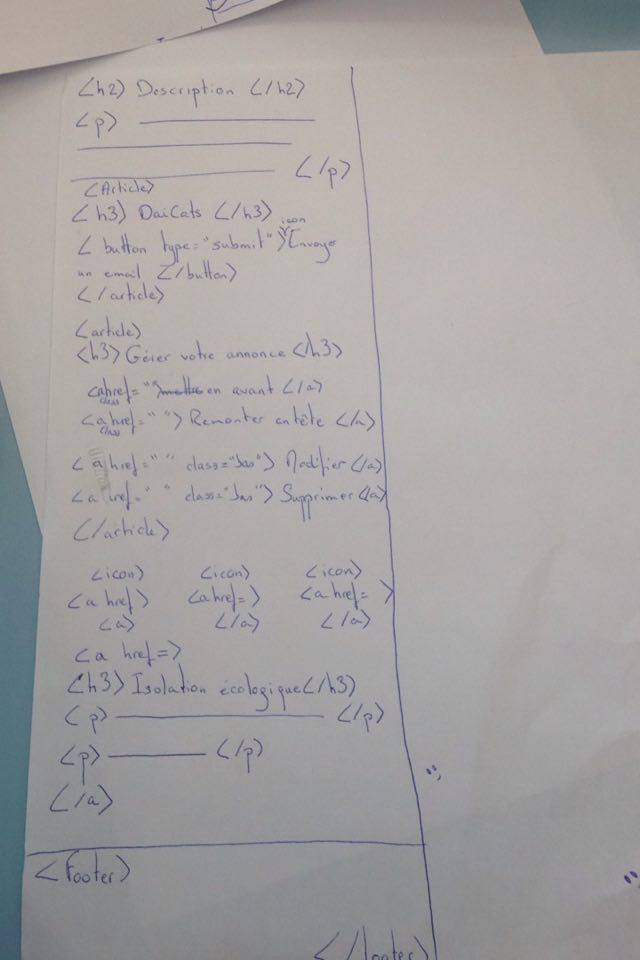 <h2> Description </h2>
<p>
</p>
<Article>
<h3> DaiCats </h3>
icon
< button type="submit" > Envoyer
un email </button>
</article>
<article>
<h3> Gérer votre annonce </h3>
<a href=" "> mettre en avant </a>
class
<a href=" "> Remonter entête </a>
class
<a href=" " class="bas"> Modifier </a>
<a href=" " class="bas"> Supprimer </a>
</article>
<icon> <icon> <icon>
<a href> <a href=> <a href= >
<a> </a> </a>
<a href=>
<h3> Isolation écologique </h3>
<p> </p>
<p> </p>
</a>
<Footer>
</footer>